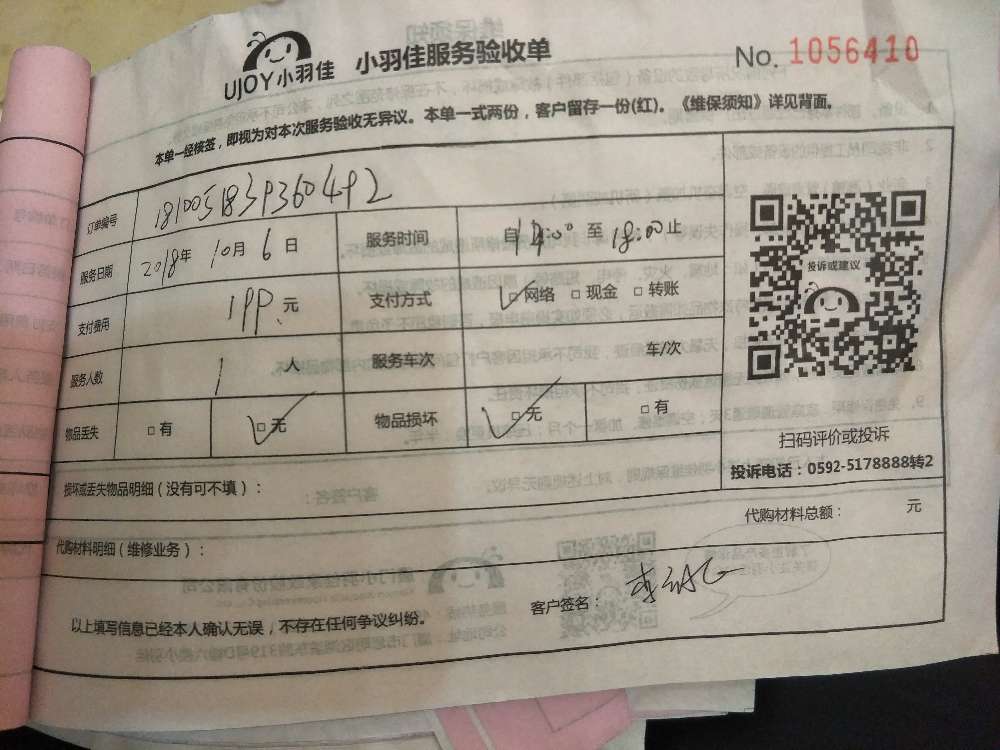 UJOY小羽佳 小羽佳服务验收单 No. 1056410
本单一经核签，即视为对本次服务验收无异议。本单一式两份，客户留存一份(红)。《维保须知》详见背面。
订单编号 1810051839360492
服务日期 2018年 10月 6日 服务时间 自 14:00 至 18:00止
支付费用 199元 支付方式 □网络 □现金 □转账
服务人数 1 人 服务车次 车/次
物品丢失 □有 □无 物品损坏 □无 □有
投诉或建议
扫码评价或投诉
投诉电话：0592-5178888转2
损坏或丢失物品明细(没有可不填)：
代购材料明细(维修业务)： 代购材料总额： 元
以上填写信息已经本人确认无误，不存在任何争议纠纷。 客户签名：